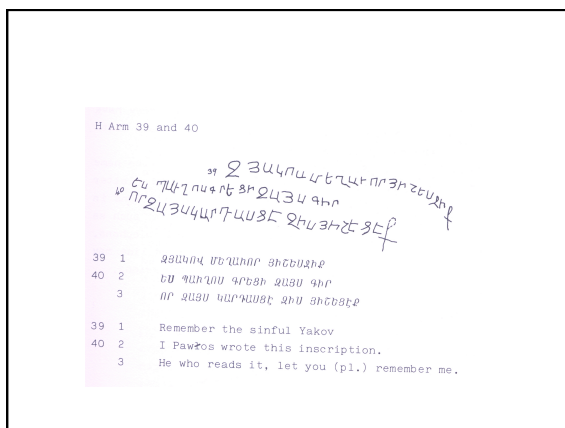 H Arm 39 and 40
39 Զ ՅԱԿՈՎ ՄԵՂԱՒՈՐ ՅԻՇԵՍՋԻՔ
40 ԵՍ ՊԱՒՂՈՍ ԳՐԵՑԻ ԶԱՅՍ ԳԻՐ
ՈՐ ԶԱՅՍ ԿԱՐԴԱՍՑԷ ԶԻՍ ՅԻՇԵՑԷՔ
39 1 ԶՅԱԿՈՎ ՄԵՂԱՒՈՐ ՅԻՇԵՍՋԻՔ
40 2 ԵՍ ՊԱՒՂՈՍ ԳՐԵՑԻ ԶԱՅՍ ԳԻՐ
3 ՈՐ ԶԱՅՍ ԿԱՐԴԱՍՑԷ ԶԻՍ ՅԻՇԵՑԷՔ
39 1 Remember the sinful Yakov
40 2 I Pawłos wrote this inscription.
3 He who reads it, let you (pl.) remember me.